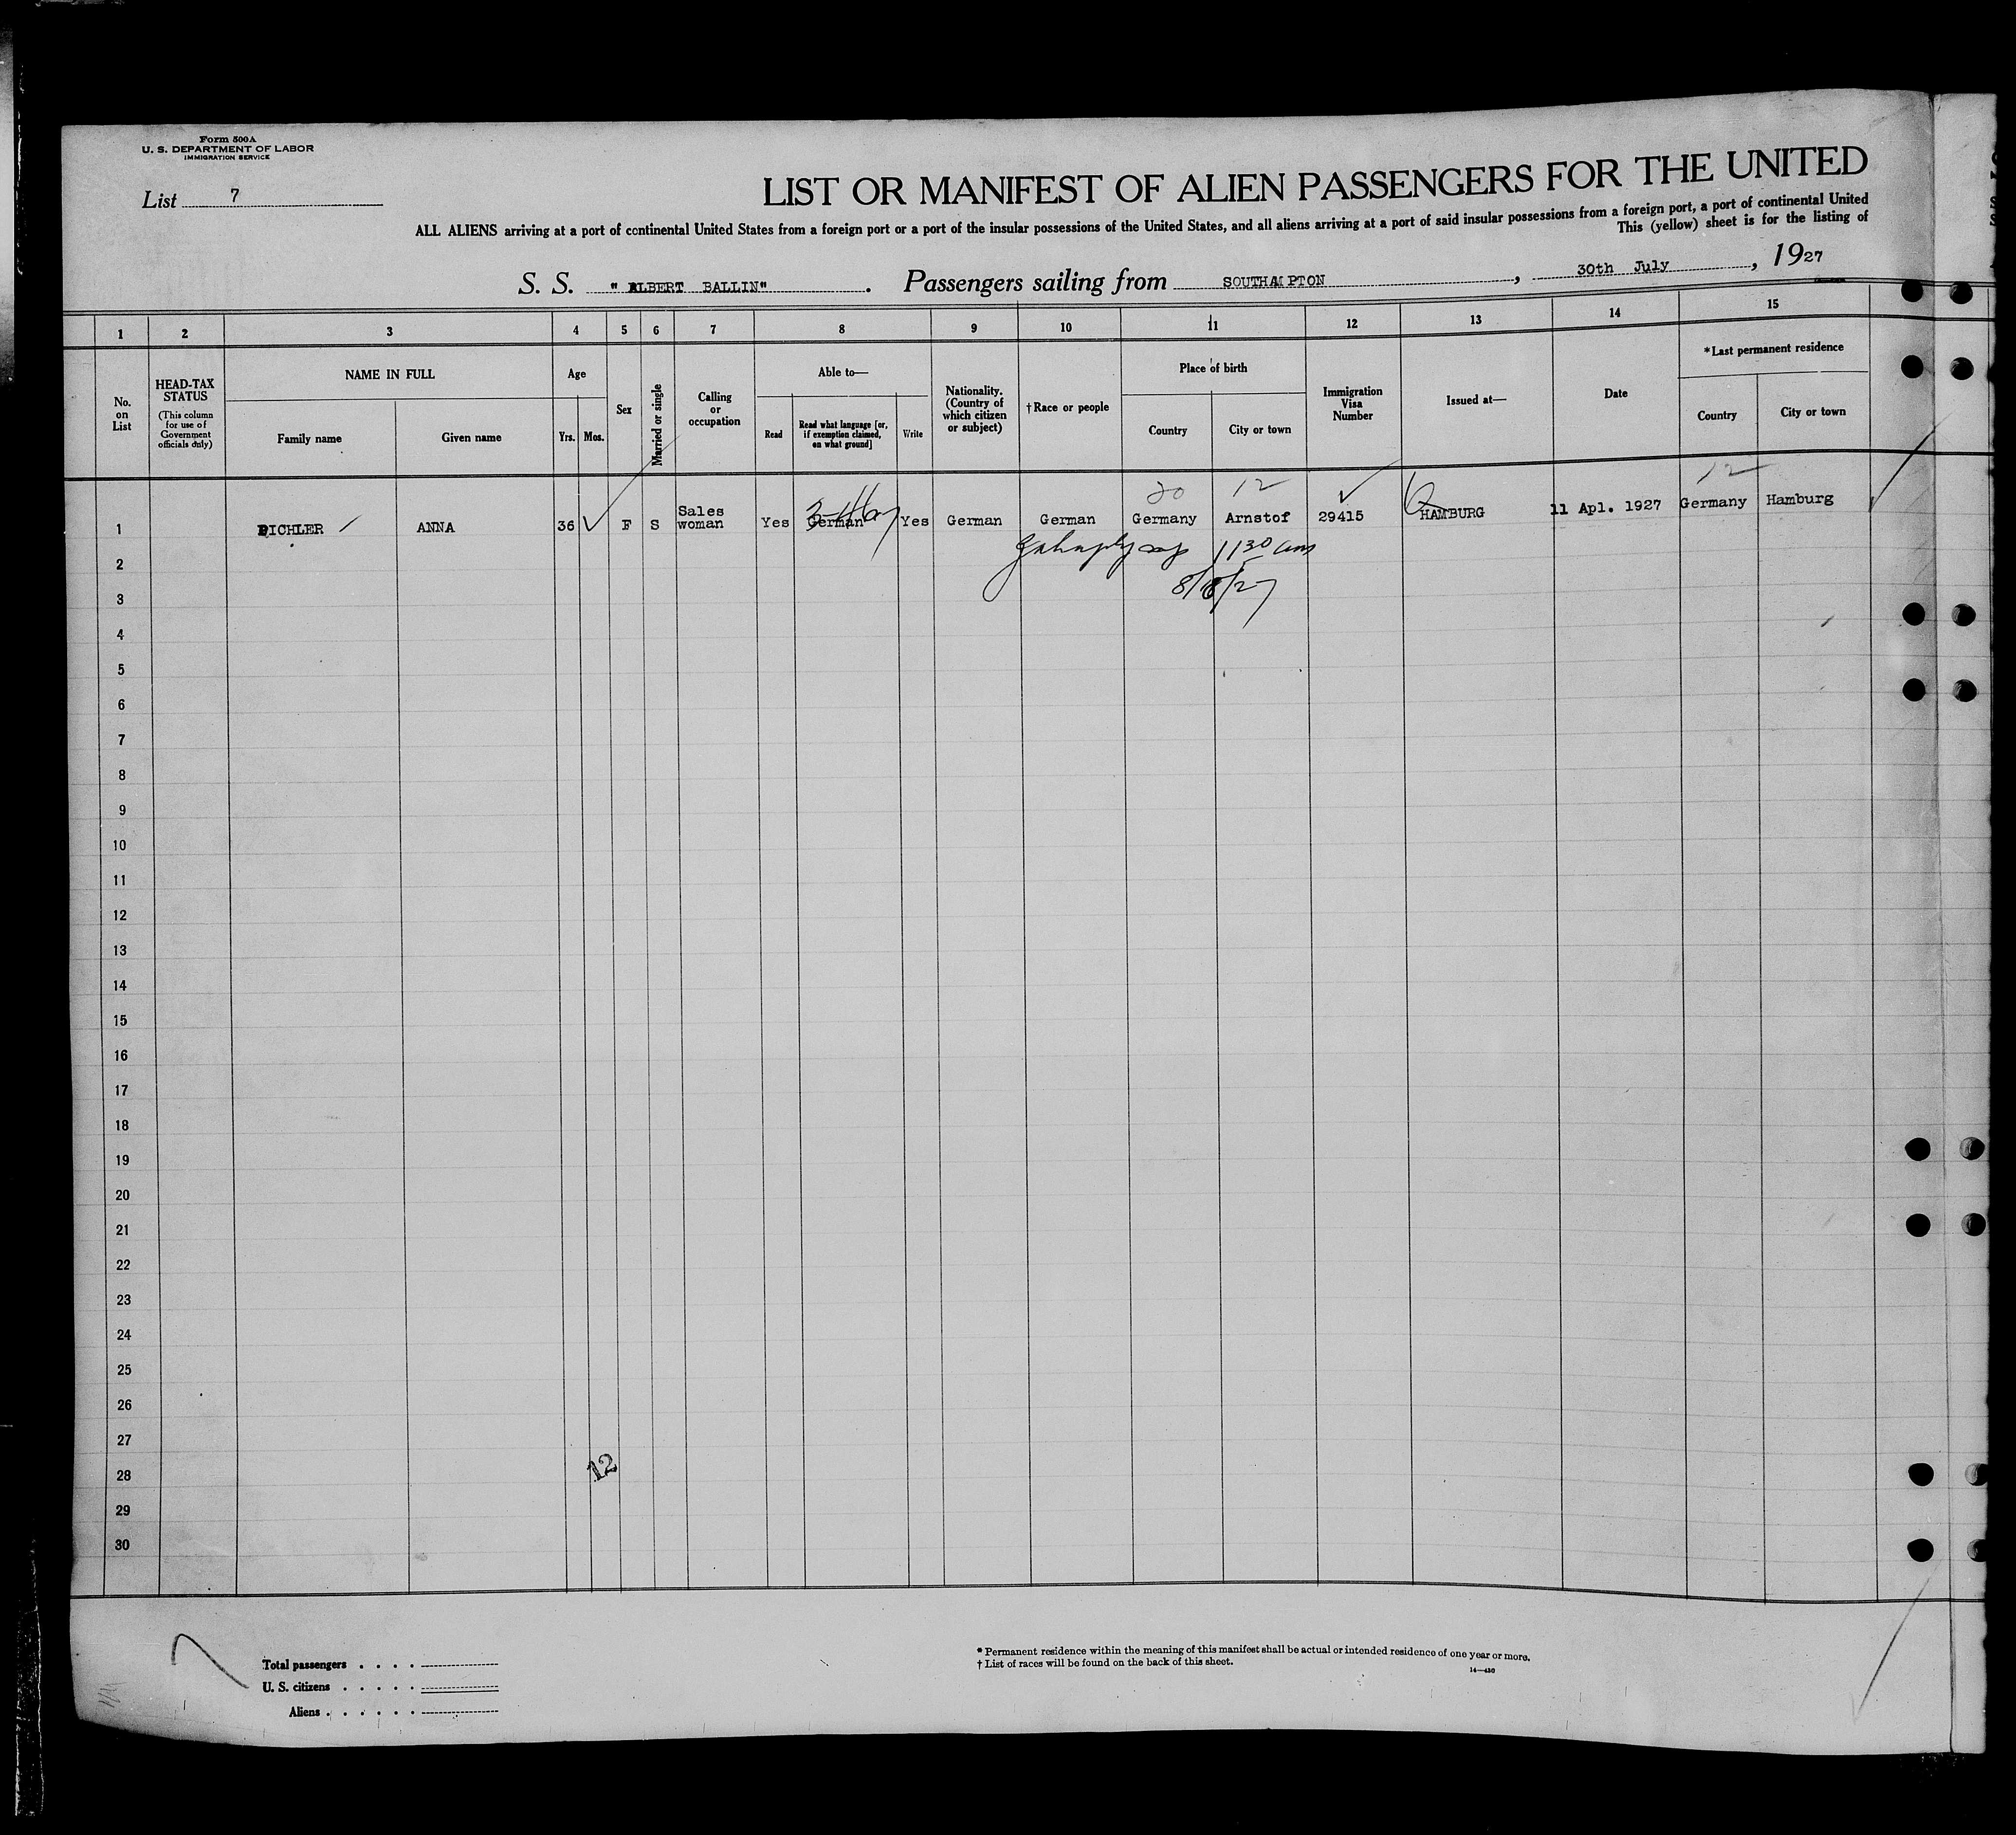 Form 500A
U. S. DEPARTMENT OF LABOR
IMMIGRATION SERVICE
List 7
LIST OR MANIFEST OF ALIEN PASSENGERS FOR THE UNITED
ALL ALIENS arriving at a port of continental United States from a foreign port or a port of the insular possessions of the United States, and all aliens arriving at a port of said insular possessions from a foreign port, a port of continental United
This (yellow) sheet is for the listing of
S. S. " ALBERT BALLIN" . Passengers sailing from SOUTHAMPTON , 30th July , 1927
1 2 3 4 5 6 7 8 9 10 11 12 13 14 15
No. on List
HEAD-TAX STATUS
(This column for use of Government officials only)
NAME IN FULL
Family name
Given name
Age
Yrs.
Mos.
Sex
Married or single
Calling or occupation
Able to—
Read
Read what language [or, if exemption claimed, on what ground]
Write
Nationality. (Country of which citizen or subject)
† Race or people
Place of birth
Country
City or town
Immigration Visa Number
Issued at—
Date
*Last permanent residence
Country
City or town
20 12 12
1 EICHLER ANNA 36 F S Sales woman Yes German Yes German German Germany Arnstof 29415 HAMBURG 11 Apl. 1927 Germany Hamburg
2 1130 am
3 8/8/27
4
5
6
7
8
9
10
11
12
13
14
15
16
17
18
19
20
21
22
23
24
25
26
27
28 12
29
30
Total passengers . . . .
U. S. citizens . . . . .
Aliens . . . . . .
* Permanent residence within the meaning of this manifest shall be actual or intended residence of one year or more.
† List of races will be found on the back of this sheet.
14—430